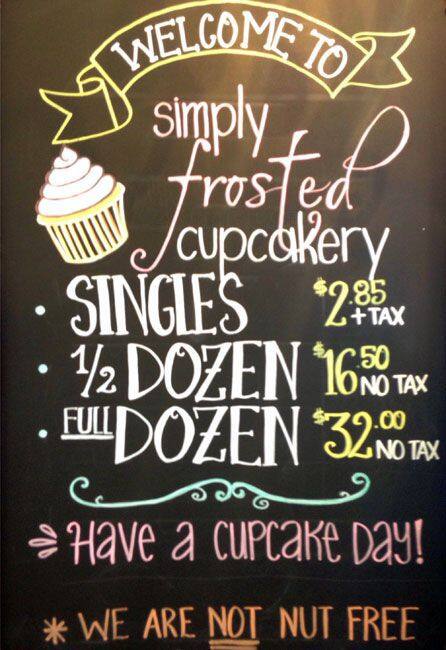 WELCOME TO
simply
frosted
cupcakery
• SINGLES $2.85 + TAX
• 1/2 DOZEN $16.50 NO TAX
• FULL DOZEN $32.00 NO TAX
Have a cupcake day!
* WE ARE NOT NUT FREE